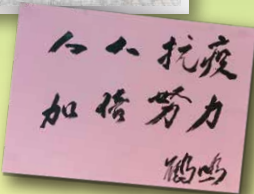 人人抗疫
加倍努力
鹤鸣